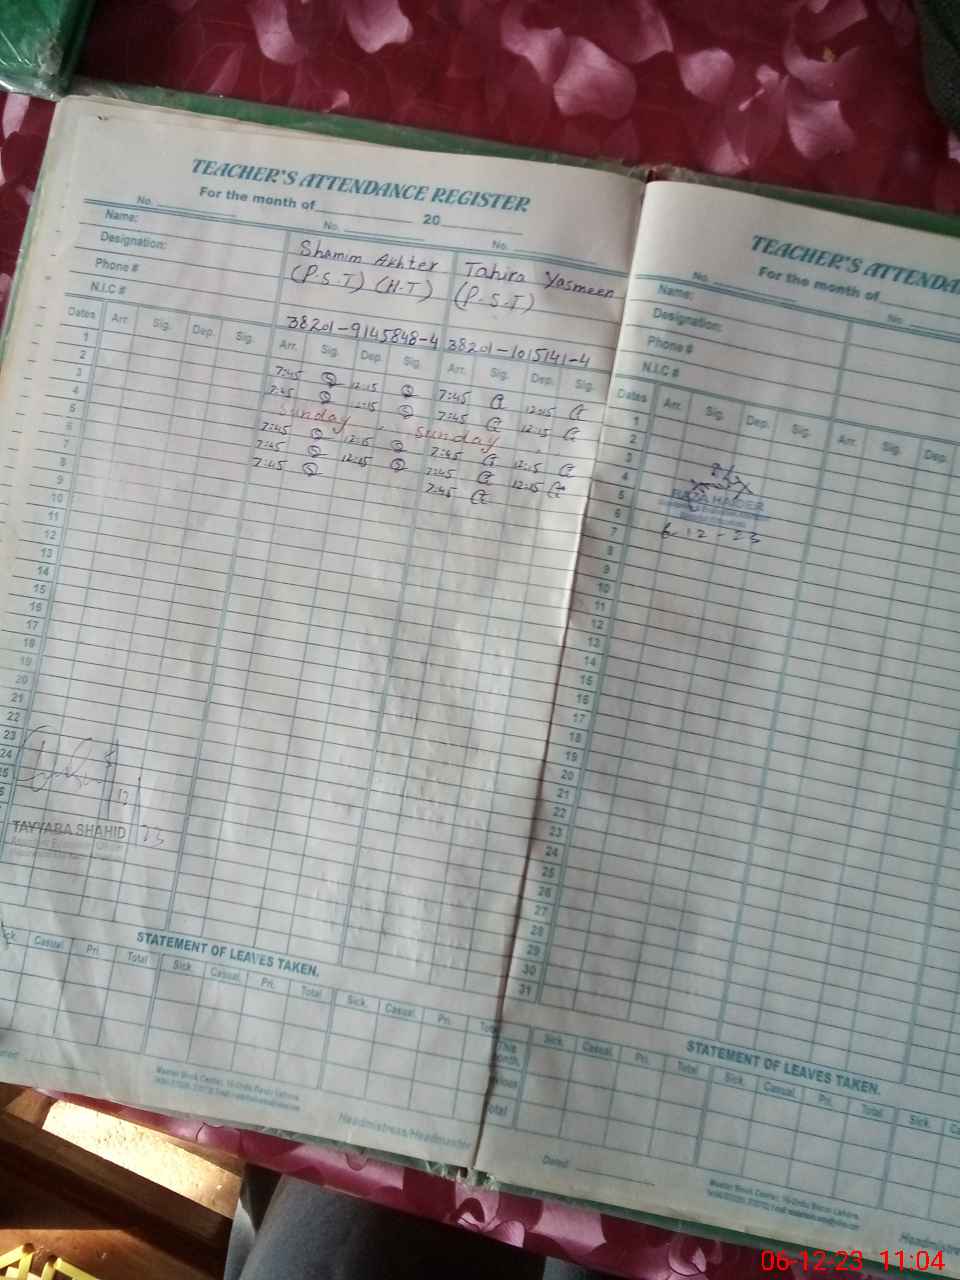 TEACHER'S ATTENDANCE REGISTER
For the month of 20
No. No. No.
Name: Shamim Akhter Tahira Yasmeen
Designation: (P.S.T) (H.T) (P.S.T)
Phone #
N.I.C # 38201-9145848-4 38201-1015141-4
Dates Arr. Sig. Dep. Sig. Arr. Sig. Dep. Sig. Arr. Sig. Dep. Sig.
1 7:45 12:15 7:45 12:15
2 7:45 12:15 7:45 12:15
3 Sunday Sunday
4 7:45 12:15 7:45 12:15
5 7:45 12:15 7:45 12:15
6 7:45 7:45
7
8
9
10
11
12
13
14
15
16
17
18
19
20
21
22
23
24
TAYYABA SHAHID
STATEMENT OF LEAVES TAKEN.
Sick. Casual. Pri. Total Sick. Casual. Pri. Total Sick. Casual. Pri. Total
Master Book Center, 16-Urdu Bazar Lahore.
Headmistress/Headmaster
TEACHER'S ATTENDA
For the month of
No. No.
Name:
Designation:
Phone #
N.I.C #
Dates Arr. Sig. Dep. Sig. Arr. Sig. Dep.
1
2
3
4
5
RAZA HAIDER
6
7 6-12-23
8
9
10
11
12
13
14
15
16
17
18
19
20
21
22
23
24
25
26
27
28
29
30
31
STATEMENT OF LEAVES TAKEN.
This Month. Sick. Casual. Pri. Total Sick. Casual. Pri. Total Sick.
Total
Dated
Master Book Center, 16-Urdu Bazar Lahore.
06-12-23 11:04